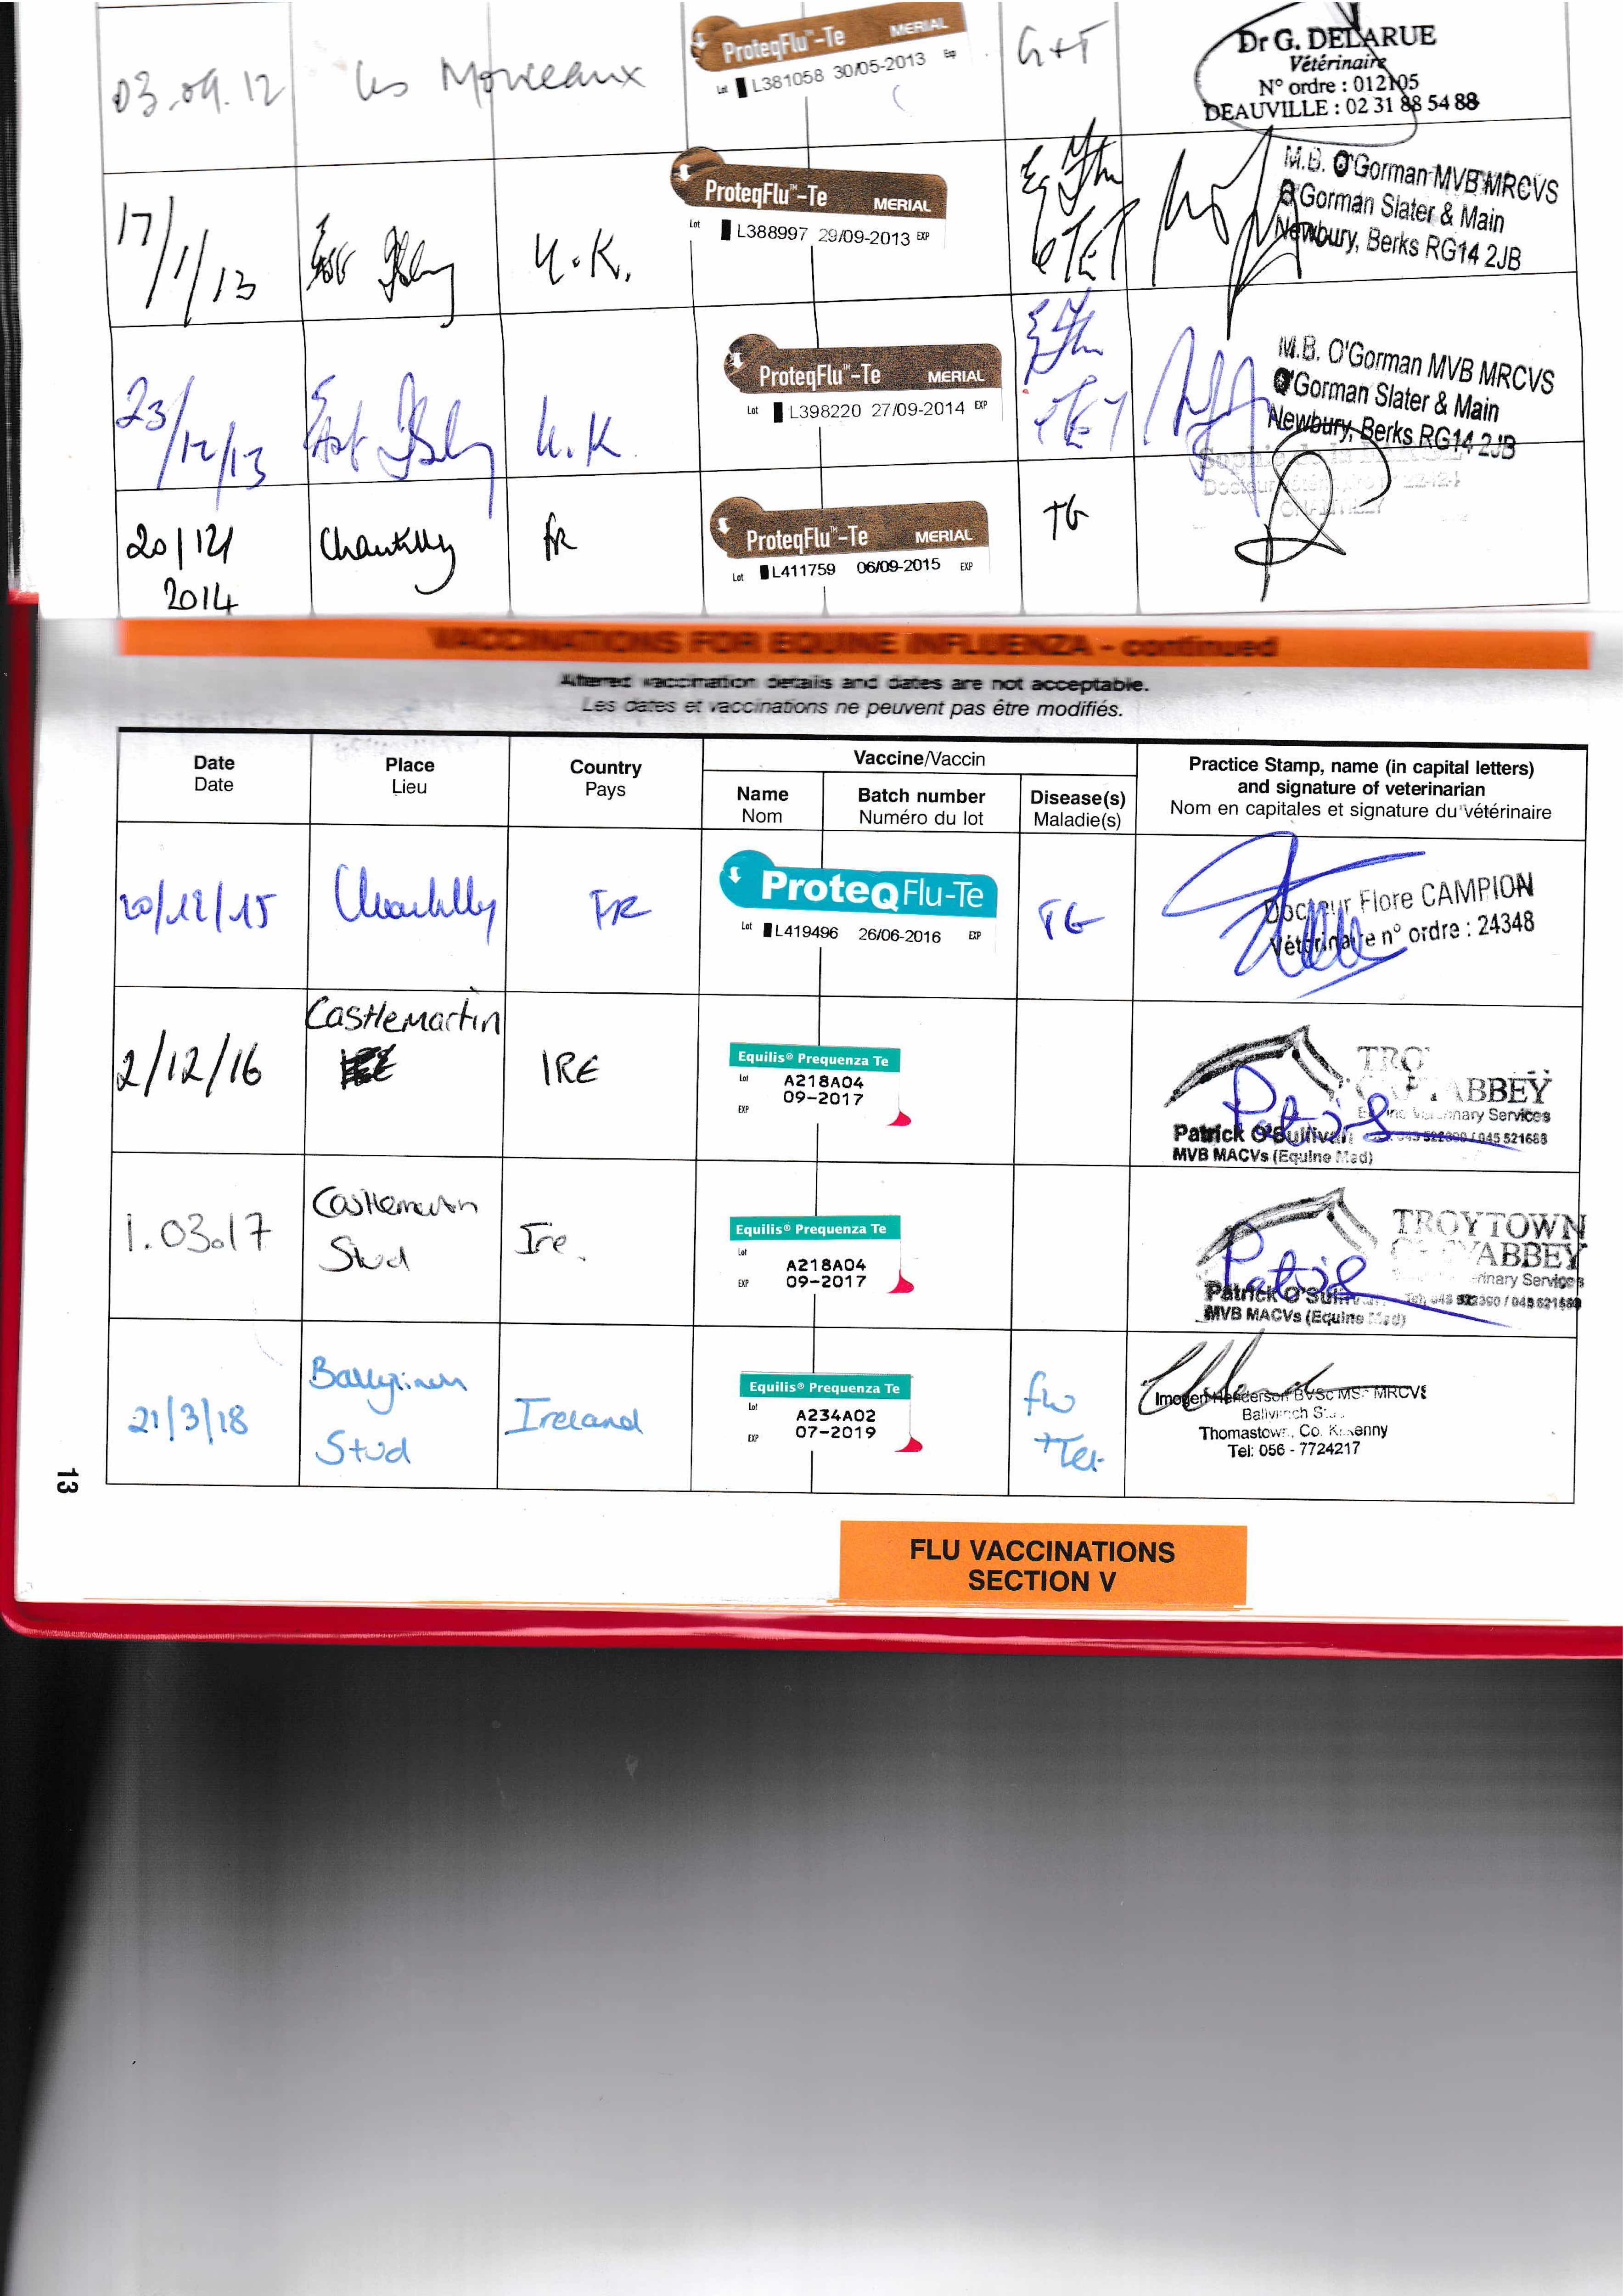 03.09.12 Les Monceaux ProteqFlu™-Te MERIAL G+T Dr G. DELARUE
Lot L381058 30/05-2013 Exp Vétérinaire
N° ordre : 012105
DEAUVILLE : 02 31 88 54 88
17/1/13 U.K. ProteqFlu™-Te MERIAL TET M.B. O'Gorman MVB MRCVS
Lot L388997 29/09-2013 EXP O'Gorman Slater & Main
Newbury, Berks RG14 2JB
23/12/13 U.K ProteqFlu™-Te MERIAL TET M.B. O'Gorman MVB MRCVS
Lot L398220 27/09-2014 EXP O'Gorman Slater & Main
Newbury, Berks RG14 2JB
20/12/ Chantilly FR ProteqFlu™-Te MERIAL TG
2014 Lot L411759 06/09-2015 EXP
VACCINATIONS FOR EQUINE INFLUENZA - continued
Altered vaccination details and dates are not acceptable.
Les dates et vaccinations ne peuvent pas être modifiés.
Date Place Country Vaccine/Vaccin Practice Stamp, name (in capital letters)
Date Lieu Pays and signature of veterinarian
Name Batch number Disease(s) Nom en capitales et signature du vétérinaire
Nom Numéro du lot Maladie(s)
20/12/15 Chantilly FR ProteqFlu-Te TG Docteur Flore CAMPION
Lot L419496 26/06-2016 EXP Vétérinaire n° ordre : 24348
2/12/16 Castlemartin IRE Equilis® Prequenza Te
Lot A218A04
EXP 09-2017
ABBEY
Veterinary Services
Patrick O'Sullivan 045 521686
MVB MACVs (Equine Med)
1.03.17 Castlemartin Ire. Equilis® Prequenza Te TROYTOWN
Stud Lot A218A04 ABBEY
EXP 09-2017 Veterinary Services
Patrick O'Sullivan
MVB MACVs (Equine Med)
21/3/18 Ballylinch Ireland Equilis® Prequenza Te flu Imogen Henderson BVSc MS MRCVS
Stud Lot A234A02 +Tet Ballylinch Stud
EXP 07-2019 Thomastown, Co. Kilkenny
Tel: 056 - 7724217
13
FLU VACCINATIONS
SECTION V